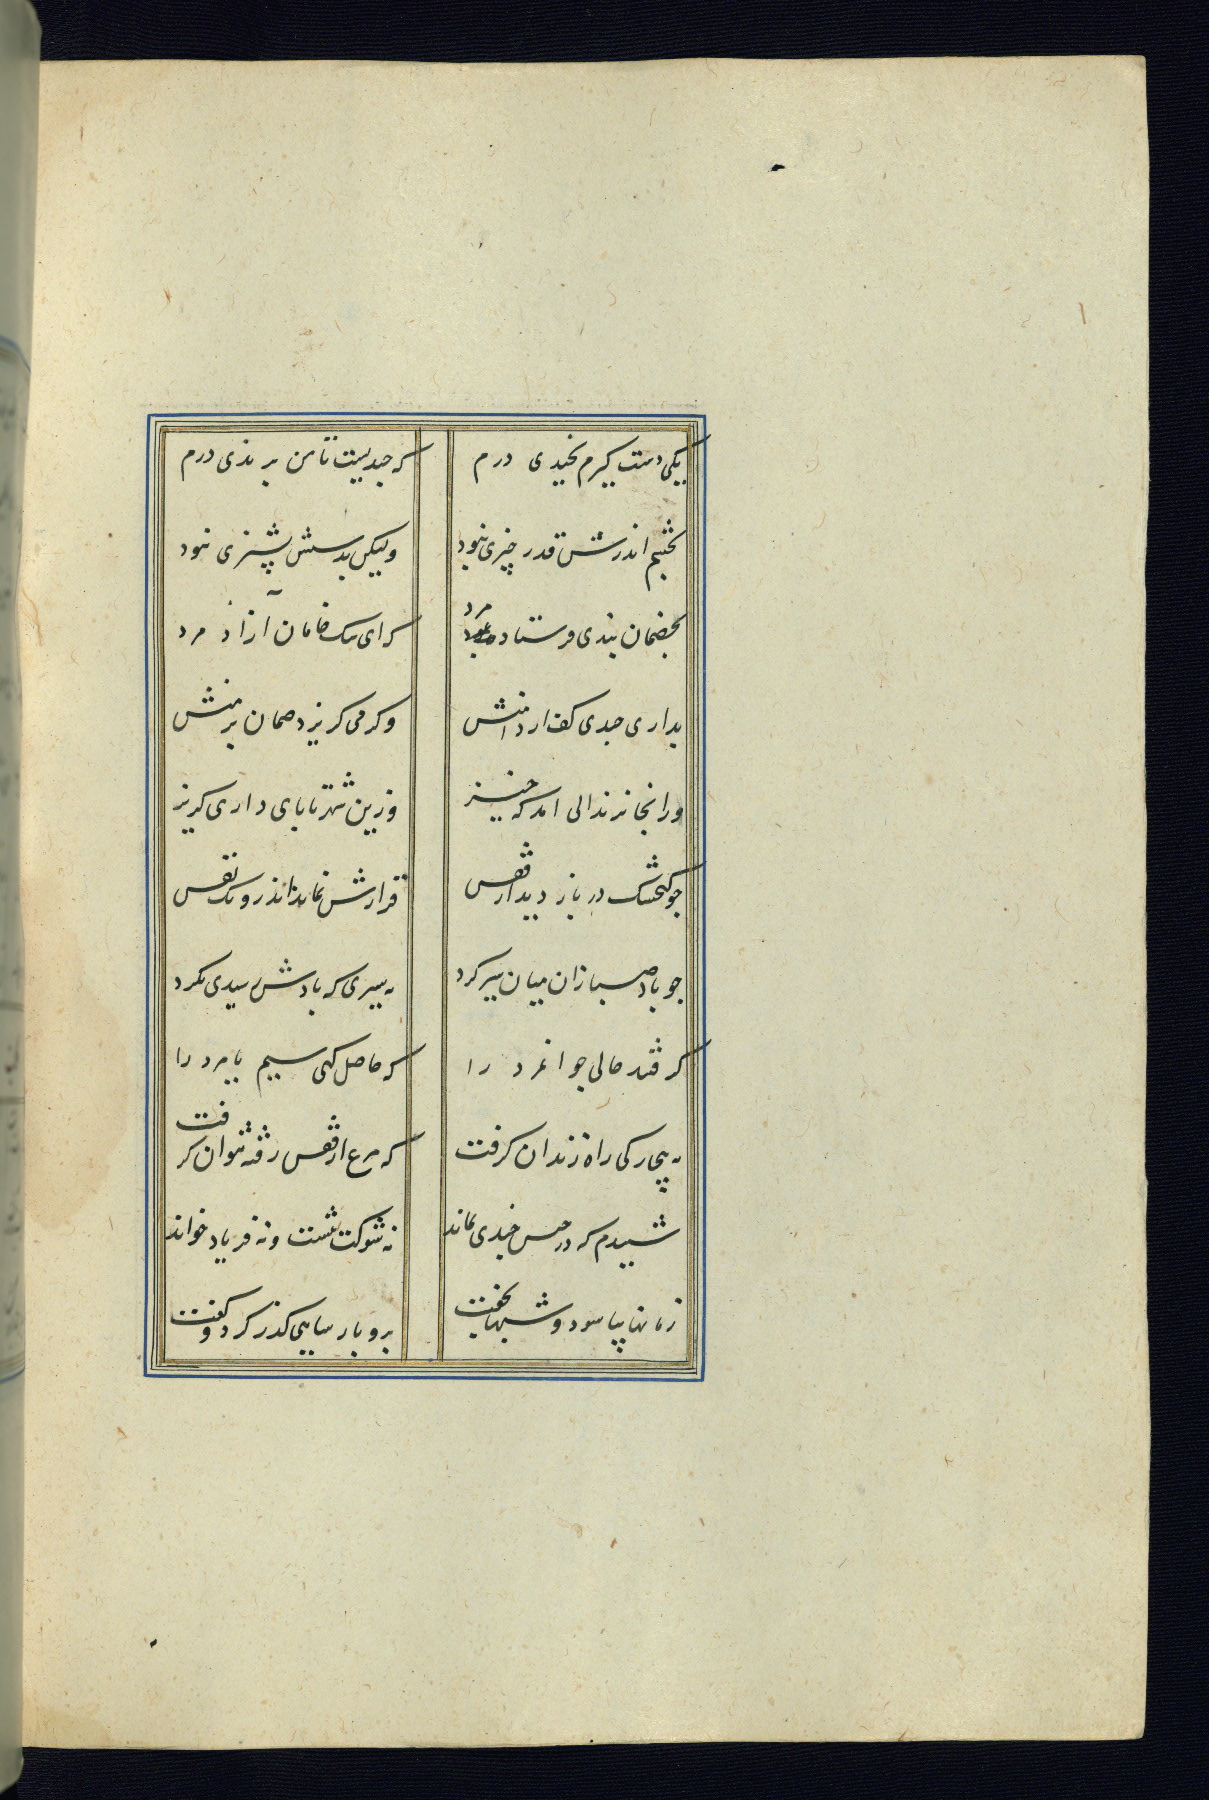 یکی دست گیرم بچندی درم
که چندیست تا من بزندی درم
بچشم اندرش قدر چیزی نبود
ولیکن بدستش پشیزی نبود
بخصمان بندی فرستاد مرد
که ای نیک نامان آزاد مرد
بداری چندی کف از دامنش
وکر می کریزد ضمان بر منش
وز انجا بزندانی امد که خیز
وزین شهر تا پای داری کریز
چو کنجشک در باز دید از قفس
قرارش نماند اندرو یک نفس
چو باد صبا زان میان سیر کرد
نه سیری که بادش رسیدی بکرد
کرفتند حالی جوانمرد را
که حاصل کنی سیم یا مرد را
به بیچارکی راه زندان کرفت
که مرغ از قفس رفته نتوان کرفت
شنیدم که در حبس چندی بماند
نه شوکت نبشت و نه فریاد خواند
زمانها نیاسود و شبها نخفت
برو پارسایی کذر کرد و کفت